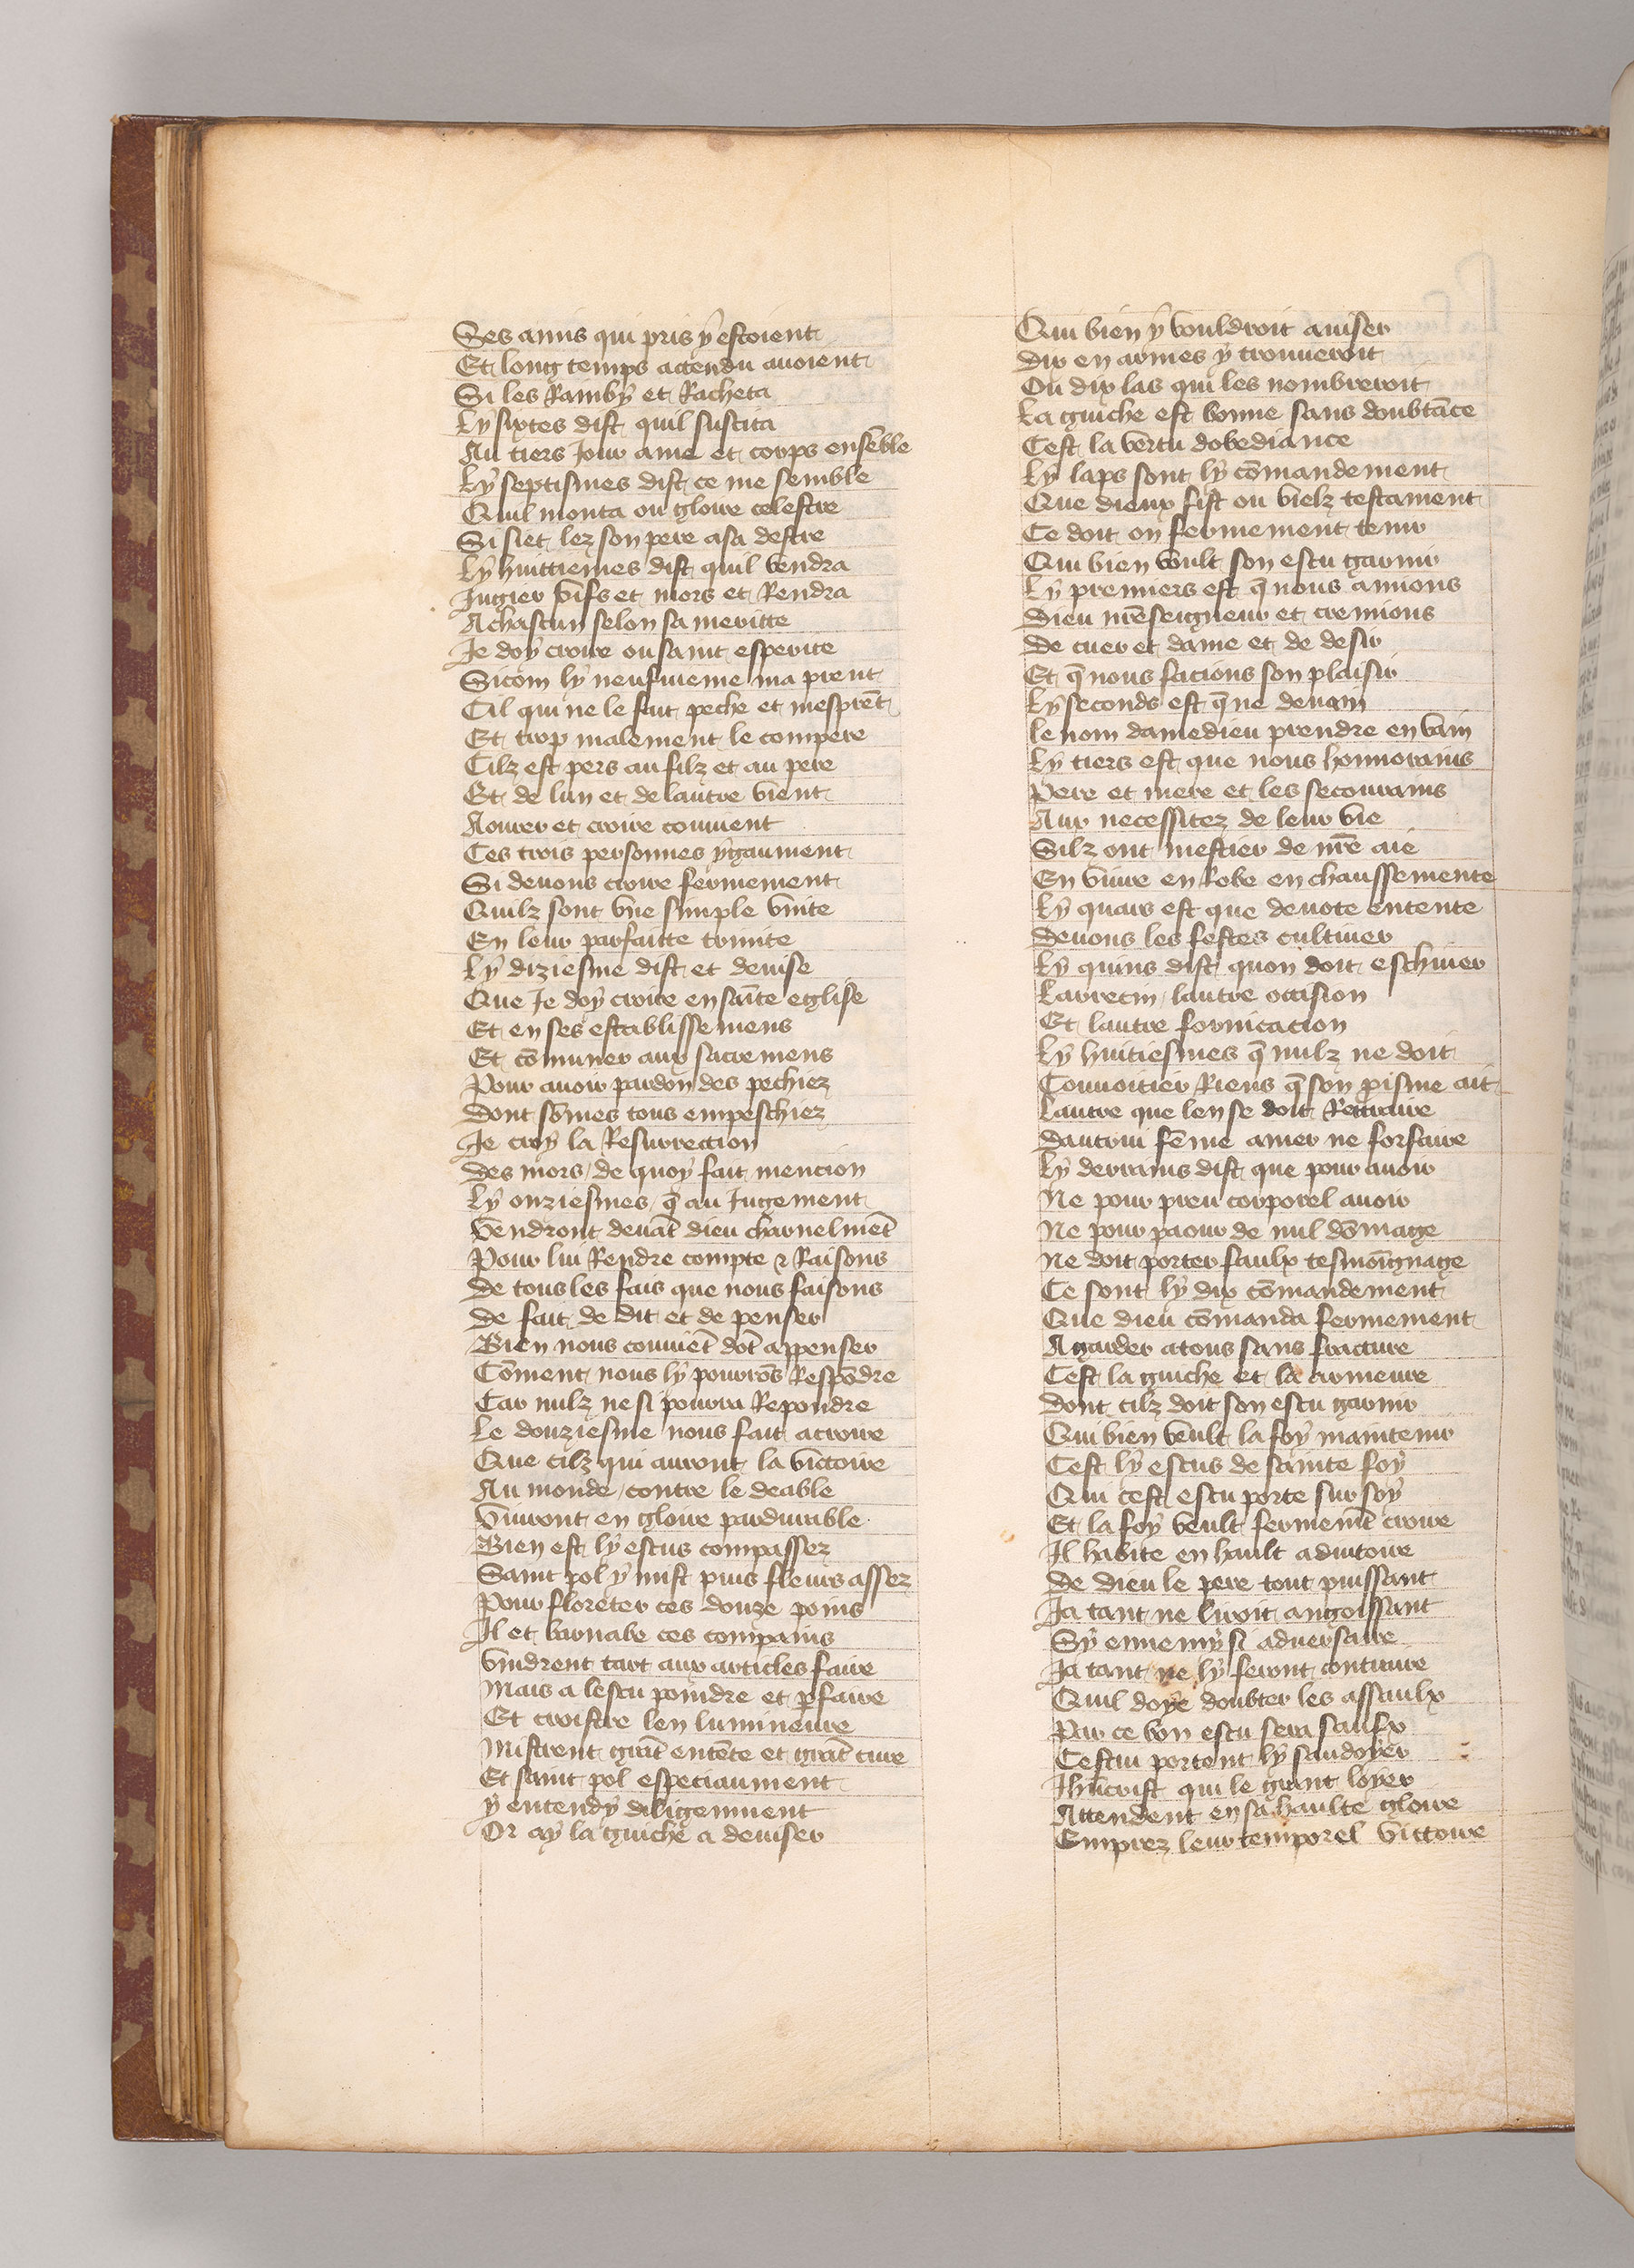 Ses amis qui pris y estoient
Et long temps attendu auoient
Si les Raimby et Racheta
Ly sixtes dist quil suscita
Au tiers Jour ame et corps ensẽble
Ly septismes dist ce me semble
Quil monta ou gloire celestre
Si siet lez son pere a sa destre
Ly huittiemes dist quil vendra
Jugier vifs et mors et Rendra
A chascun selon sa meritte
Je doy croire ou saint esperite
Si com̃ ly neufuieme ma prent
Cil qui ne le fait peche et mesprẽt
Et trop malement le compere
Cilz est pers au filz et au pere
Et de lun et de lautre vient
Aourer et croire conuient
Ces trois personnes ygaument
Si deuons croire fermement
Quilz sont vne simple vnite
En leur parfaitte trinite
Ly diziesme dist et deuise
Que Je doy croire en saĩte eglise
Et en ses establissemens
Et cõmunier aux sacremens
Pour auoir pardon des pechiez
Dont sõmes tous empeschiez
Je croy la Resurrection
Des mors / de quoy fait mencion
Ly onziesmes / q̃ au Jugement
Vendront deuãt dieu charnelmẽt
Pour lui Rendre compte ⁊ Raisons
De tous les fais que nous faisons
De fait de dit et de penser
Bien nous conuiẽt dõt appenser
Cõment nous ly pourrõs Respõdre
Car nulz ne si pourra Repondre
Le douziesme nous fait acroire
Que cilz qui auront la victoire
Au monde / contre le deable
Viuront en gloire pardurable
Bien est ly escus compassez
Saint pol y mist puis fleurs assez
Pour floreter ces douze poins
Il et barnabe ces compains
Vindrent tart aux articles faire
Mais a lescu poindre et p̱faire
Et croistre len lumineure
Mistrent grãt entẽte et grãt cure
Et saint pol especiaument
y entendy diligemment
Or ay la guiche a deuiser
Qui bien y vouldroit auiser
Dix en armes y trouueroit
Ou dix las qui les nombreroit
La guiche est bonne sans doubtãce
Cest la vertu dobediance
Ly laps sont ly cõmandement
Que dieux fist ou vielz testament
Ce doit on fermement tenir
Qui bien voult son escu garnir
Ly premiers est q̃ nous amons
Dieu nr̃e seigneur et cremions
De cuer et dame et de desir
Et q̃ nous facions son plaisir
Ly seconds est q̃ ne deuom
le nom damedieu prendre en vain
Ly tiers est que nous honnorains
Pere et mere et les secourains
Aux necessitez de leur vie
Silz ont mestier de nr̃e aie
En viure en Robe en chaussemente
Ly quars est que deuote entente
Deuons les festes cultiuer
Ly quins dist quon doit eschiuer
Larrecin / lautre occision
Et lautre fornication
Ly huitiesmes q̃ nulz ne doit
Conuoitier Riens q̃ son pisme ait
Lautre que len se doit Rettraire
Dautrui fẽme amer ne forfaire
Ly derrains dist que pour auoir
Ne pour preu corporel auoir
Ne pour paour de nul dõmage
Ne doit porter faulx tesmoingnage
Ce sont ly dix cõmandement
Que dieu cõmanda fermement
A garder a tous sans fracture
Cest la guiche et la armeure
Dont cilz doit son escu garnir
Qui bien veult la foy maintenir
Cest ly escus de sainte foy
Qui cest escu porte sur soy
Et la foy veult fermemẽt croire
Il habite en hault adiutoire
De dieu le pere tout puissant
Ja tant ne liroit angoissant
Sy ennemy si aduersaire
Ja tant ne ly seront contraire
Quil doye doubter les assaulx
Par ce bon escu sera saulx
Cestui portent ly saudoyer
Jhũcrist qui le grant loyer
Attendent en sa haulte gloire
Emprez leur temporel victoire